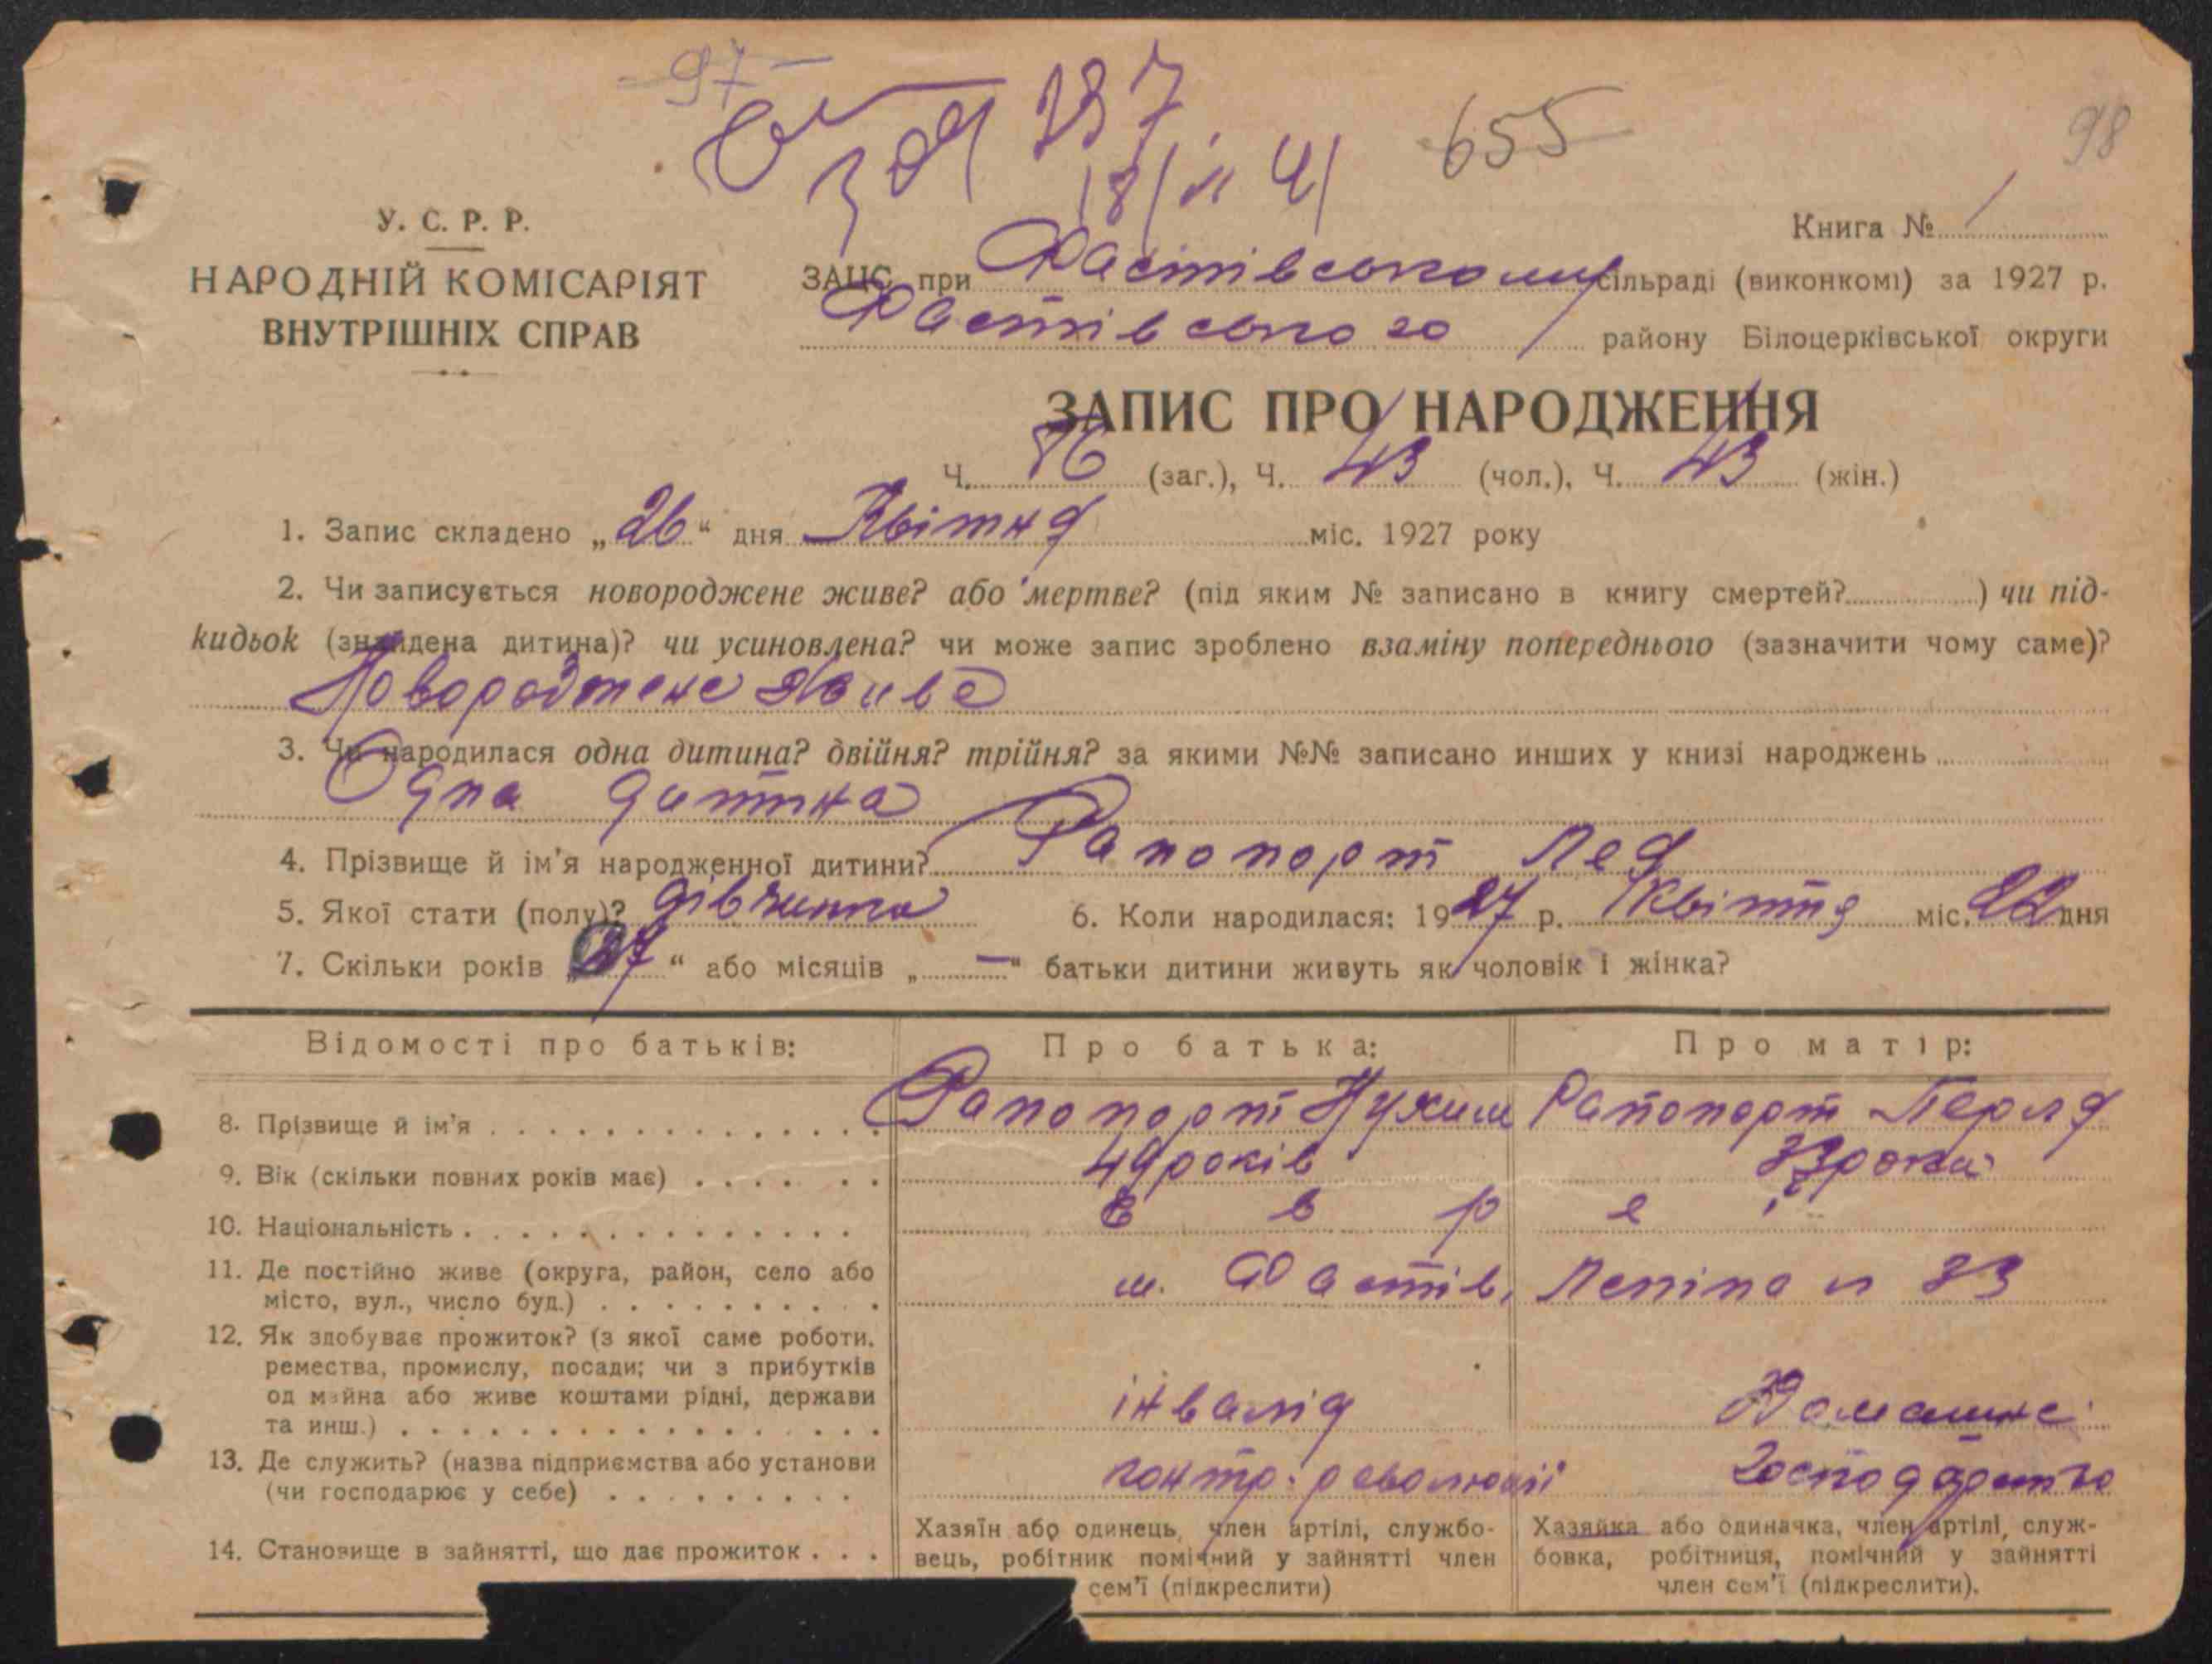 97
237
18/II 41
655
98
У. С. Р. Р.
НАРОДНІЙ КОМІСАРІЯТ
ВНУТРІШНІХ СПРАВ
Книга № 1
ЗАЦС при Фастівському сільраді (виконкомі) за 1927 р.
Фастівського району Білоцерківської округи
ЗАПИС ПРО НАРОДЖЕННЯ
Ч. 86 (заг.), Ч. 43 (чол.), Ч. 43 (жін.)
1. Запис складено „26“ дня Квітня міс. 1927 року
2. Чи записується новороджене живе? або мертве? (під яким № записано в книгу смертей? ) чи під-
кидьок (знайдена дитина)? чи усиновлена? чи може запис зроблено взаміну попереднього (зазначити чому саме)?
Новороджене живе
3. Чи народилася одна дитина? двійня? трійня? за якими №№ записано инших у книзі народжень
Одна дитина
4. Прізвище й ім'я народженної дитини? Рапопорт Лея
5. Якої стати (полу)? дівчинка 6. Коли народилася: 1927 р. Квітня міс. 22 дня
7. Скільки років „27“ або місяців „—“ батьки дитини живуть як чоловік і жінка?
Відомості про батьків: Про батька: Про матір:
8. Прізвище й ім'я Рапопорт Нухим Рапопорт Перля
9. Вік (скільки повних років має) 49 років 33 роки
10. Національність Е в р е ї
11. Де постійно живе (округа, район, село або
місто, вул., число буд.) м. Фастів, Леніна 33
12. Як здобуває прожиток? (з якої саме роботи,
ремества, промислу, посади; чи з прибутків
од майна або живе коштами рідні, держави
та инш.) інвалід Домашнє
13. Де служить? (назва підприємства або установи
(чи господарює у себе) контр. революції Господарство
14. Становище в зайнятті, що дає прожиток
Хазяїн або одинець, член артілі, службо-
вець, робітник помічний у зайнятті член
сем'ї (підкреслити)
Хазяйка або одиначка, член артілі, служ-
бовка, робітниця, помічний у зайнятті
член сем'ї (підкреслити).